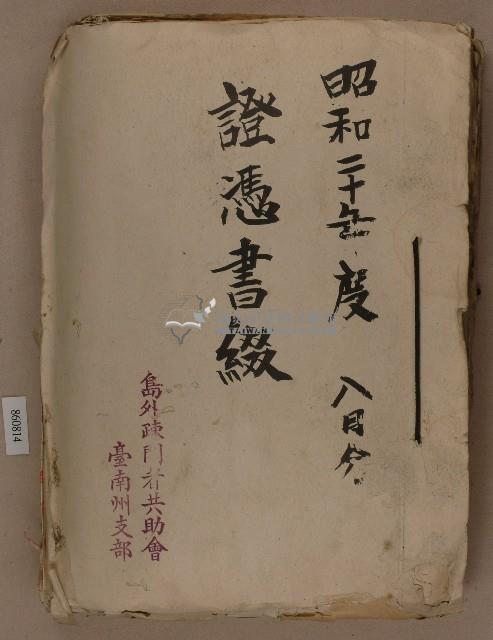 昭和二十年度 八月分
證憑書綴
島外疎開者共助會
臺南州支部
860814
TAIWAN